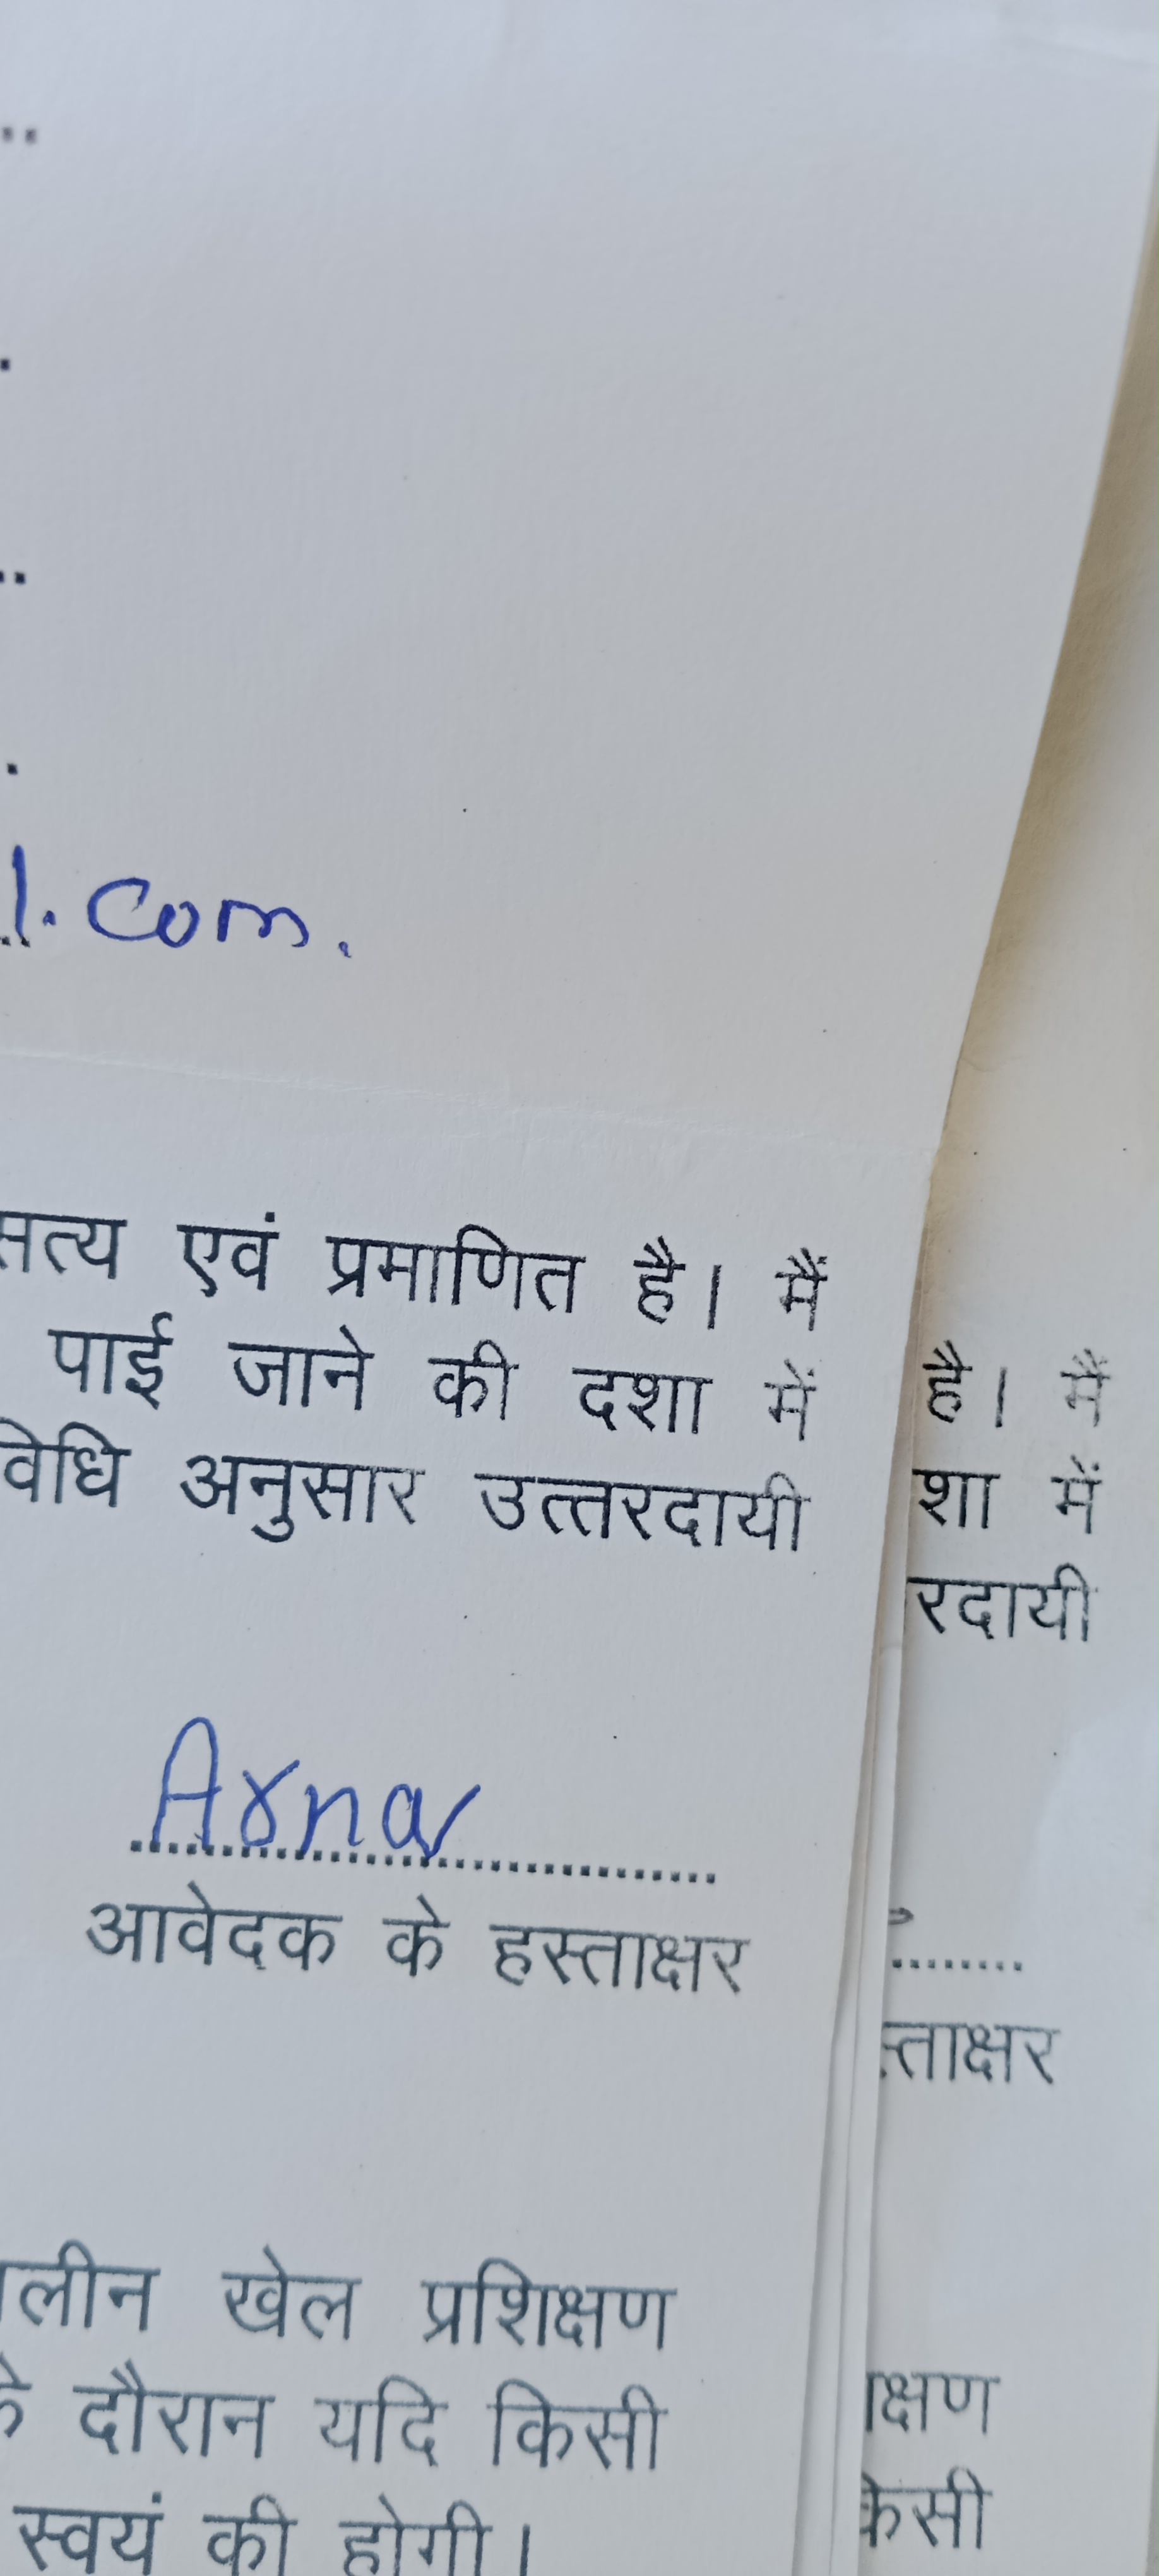 l. com.
सत्य एवं प्रमाणित है। मैं
पाई जाने की दशा में
विधि अनुसार उत्तरदायी
Arnav
आवेदक के हस्ताक्षर
लीन खेल प्रशिक्षण
के दौरान यदि किसी
स्वयं की होगी।
है। मैं
शा में
रदायी
स्ताक्षर
क्षण
केसी